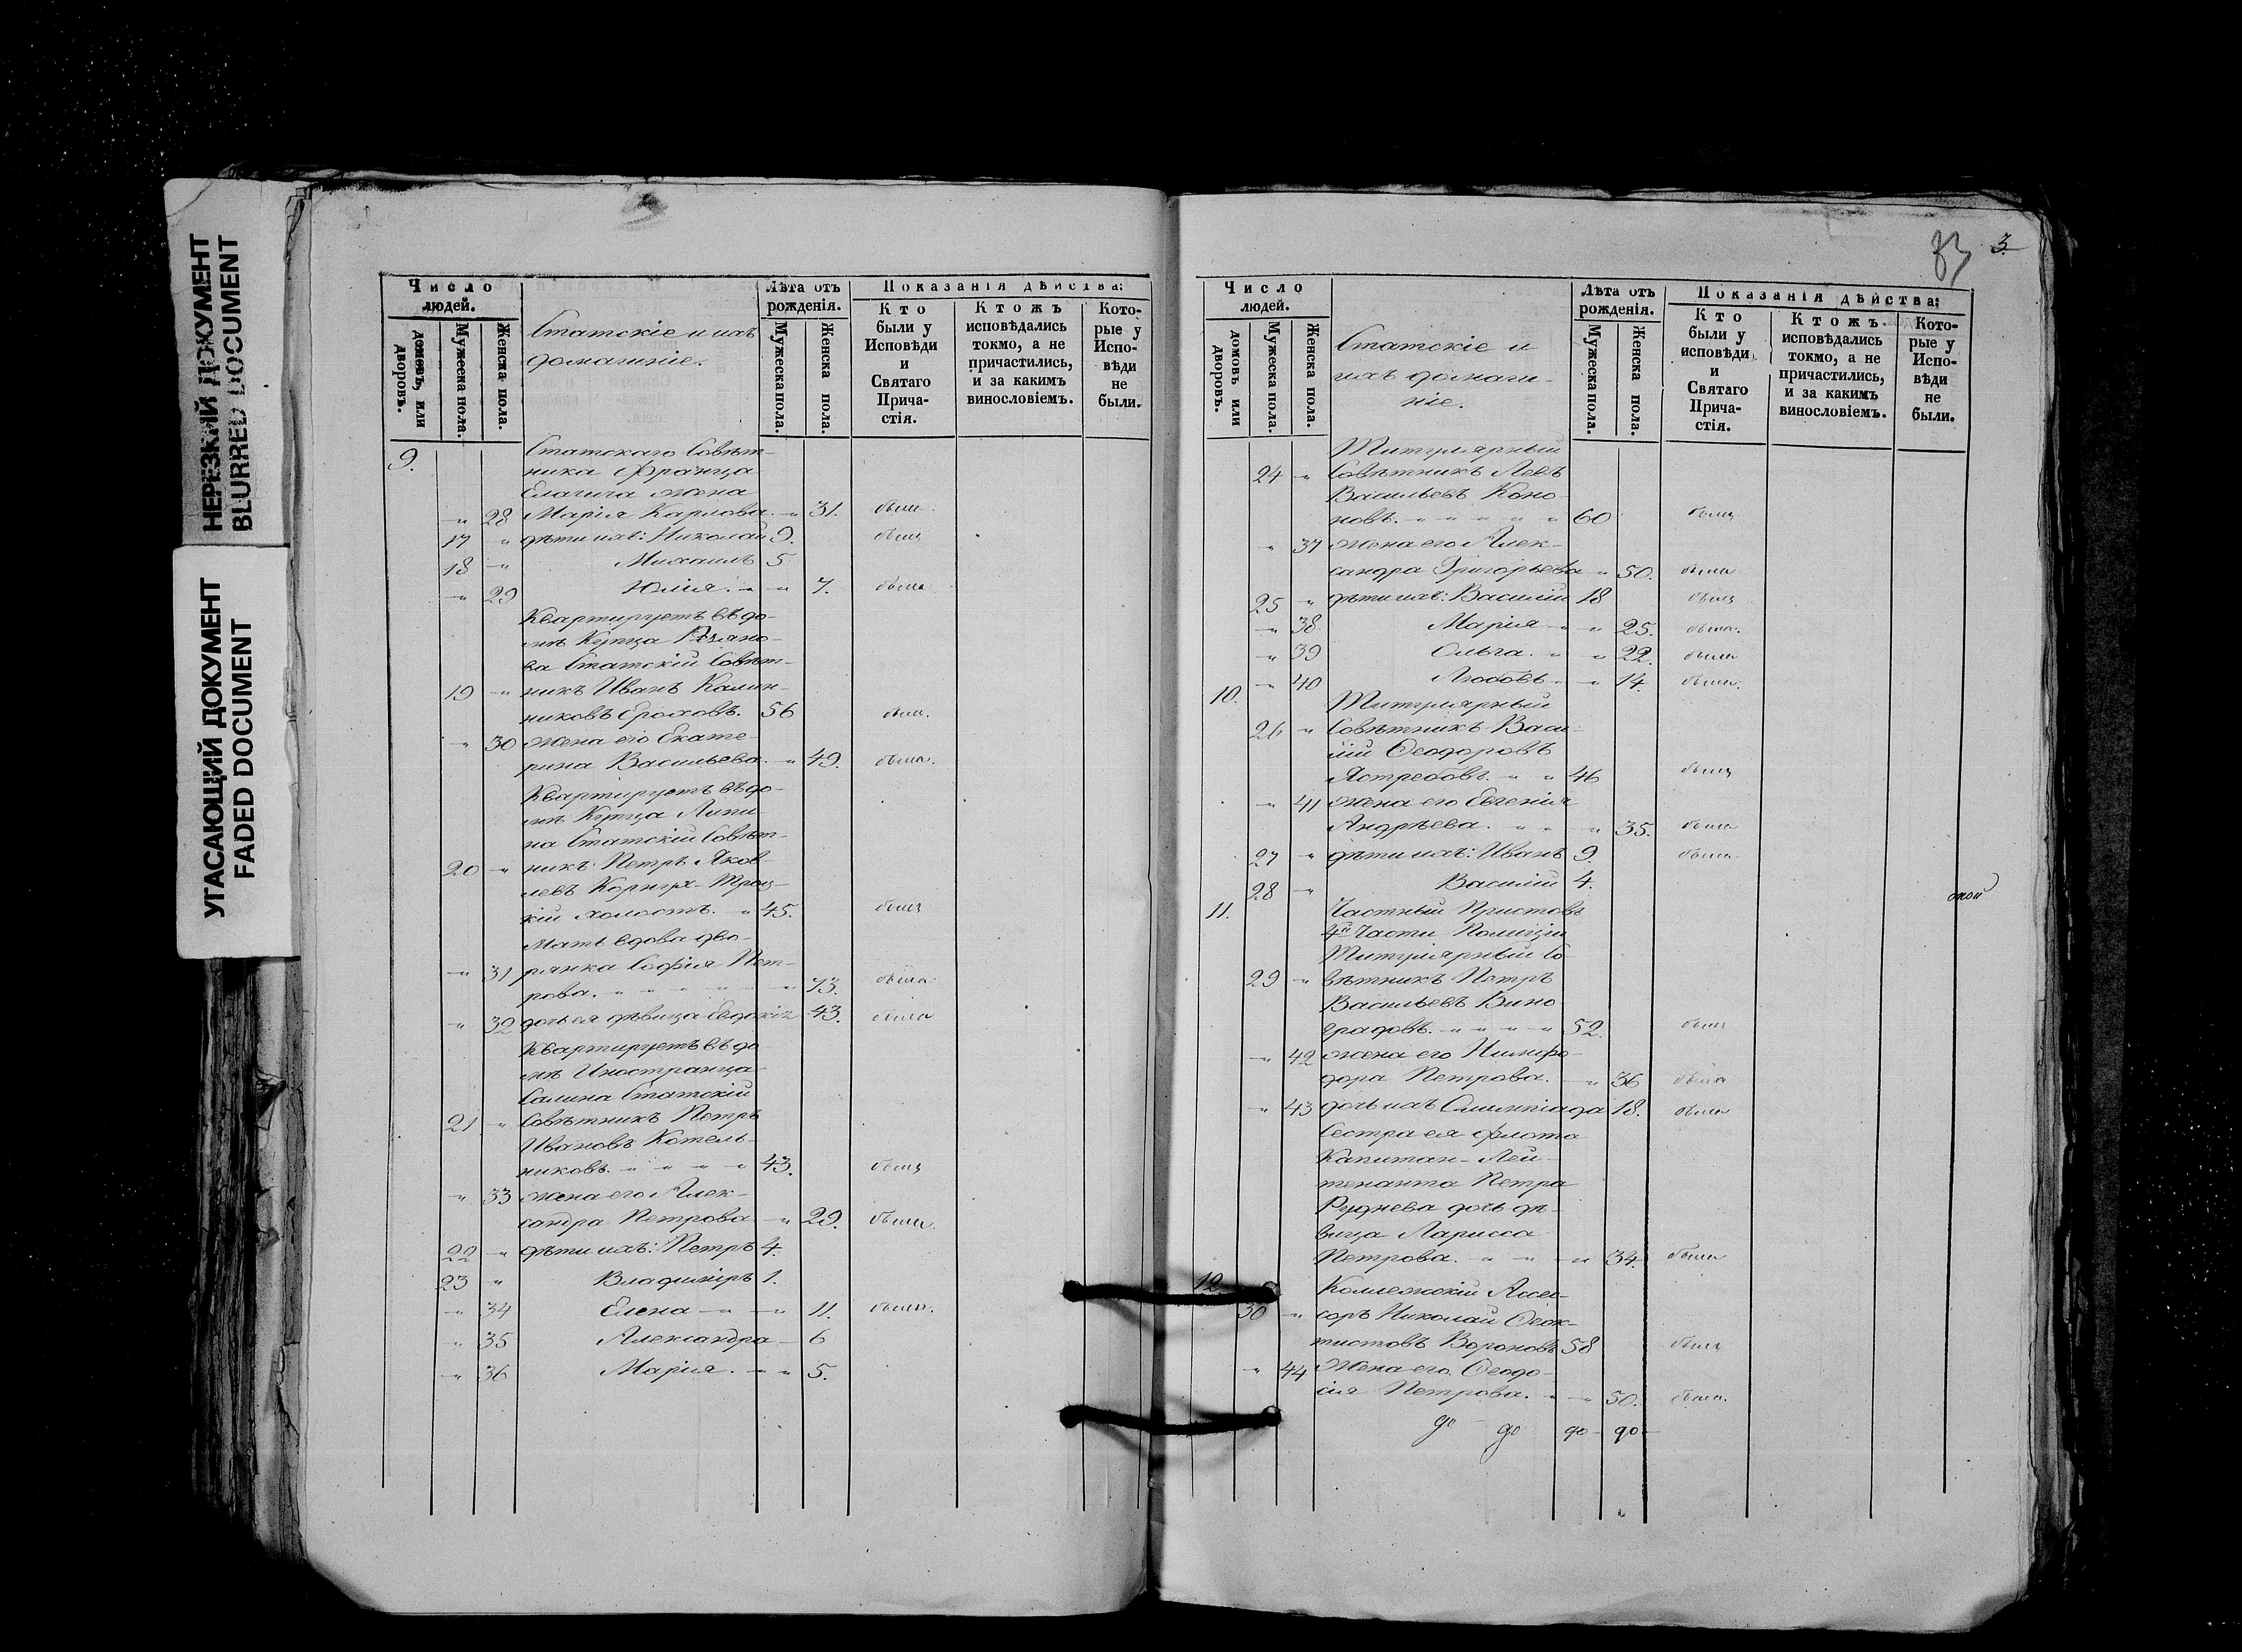 НЕРЕЗКИЙ ДОКУМЕНТ
BLURRED DOCUMENT
УГАСАЮЩИЙ ДОКУМЕНТ
FADED DOCUMENT
Число людей.
домовъ, или дворовъ.
Мужеска пола.
Женска пола.
Статскіе и ихъ
домашніе.
Лѣта отъ рожденія.
Мужеска пола.
Женска пола.
Показанія дѣйства:
Кто были у Исповѣди и Святаго Прича-стія.
Ктожъ исповѣдались токмо, а не причастились, и за какимъ винословіемъ.
Кото-рые у Испо-вѣди не были.
9. Статскаго Совѣт-
ника Франца
жена
" 28 Марія Карлова. " 31. была
17 " дѣти ихъ: Николай 9. былъ
18 " Михаилъ 5
" 29 Юлія. " " 7. была
Квартируетъ въ до-
мѣ Купца
ва Статскій Совѣт-
19 " никъ Иванъ Калин-
никовъ Ероховъ. 56 былъ.
" 30 жена его Екате-
рина Васильева. " 49. была.
Квартируетъ въ до-
мѣ Купца Липи
на Статскій Совѣт-
20 " никъ Петръ Яков-
левъ Корнух-Троц-
кій холостъ. " 45. былъ
Мать вдова дво-
" 31 рянка Софія Пет-
рова. " " " " " 73. была
" 32 дочь ея дѣвица Евдокія 43. была
Квартируетъ въ до
мѣ Иностранца
Салина Статскій
21 " Совѣтникъ Петръ
Ивановъ Котель-
никовъ. " " " " 43. былъ
" 33 жена его Алек-
сандра Петрова " 29. была.
22 " дѣти ихъ: Петръ 4.
23 " Владиміръ 1.
" 34 Елена " " 11. была.
" 35 Александра 6
" 36 Марія. " " 5.
83 3
Число людей.
домовъ или дворовъ.
Мужеска пола.
Женска пола.
Статскіе и
ихъ домаш-
ніе.
Лѣта отъ рожденія.
Мужеска пола.
Женска пола.
Показанія дѣйства:
Кто были у исповѣди и Святаго Прича-стія.
Ктожъ исповѣдались токмо, а не причастились, и за какимъ винословіемъ.
Кото-рые у Испо-вѣди не были.
Титулярный
24 " Совѣтникъ Левъ
Васильевъ Коно-
новъ. " " " " " 60 былъ
" 37 жена его Алек-
сандра Григорьева " 50. была
25 " дѣти ихъ: Василій 18 былъ
" 38 Марія " " 25. была.
" 39 Ольга. " " 22. была
" 40 Любовь " " 14. была.
10. Титулярный
26 " Совѣтникъ Васи-
лій Ѳеодоровъ
Ястребовъ. " " 46 былъ
" 41 жена его Евгенія
Андрѣева. " " " 35. была
27 " дѣти ихъ: Иванъ 9. былъ
28 " Василій 4.
11. Частный Приставъ
4й Части Полиціи
Титулярный Со-
29 " вѣтникъ Петръ
Васильевъ Вино-
градовъ. " " " " 52. былъ
" 42 жена его Нимфо-
дора Петрова. " 36 была
" 43 дочь ихъ Олимпіада 18. была
Сестра ея флота
Капитан-Лей-
тенанта Петра
Руднева дочь дѣ-
вица Ларисса
Петрова. " " " 34. была
12. Коллежскій Ассес-
30 " соръ Николай Ѳеок-
тистовъ Вороновъ 58 былъ
" 44 Жена его Ѳеодо-
сія Петрова. " " 50. была.